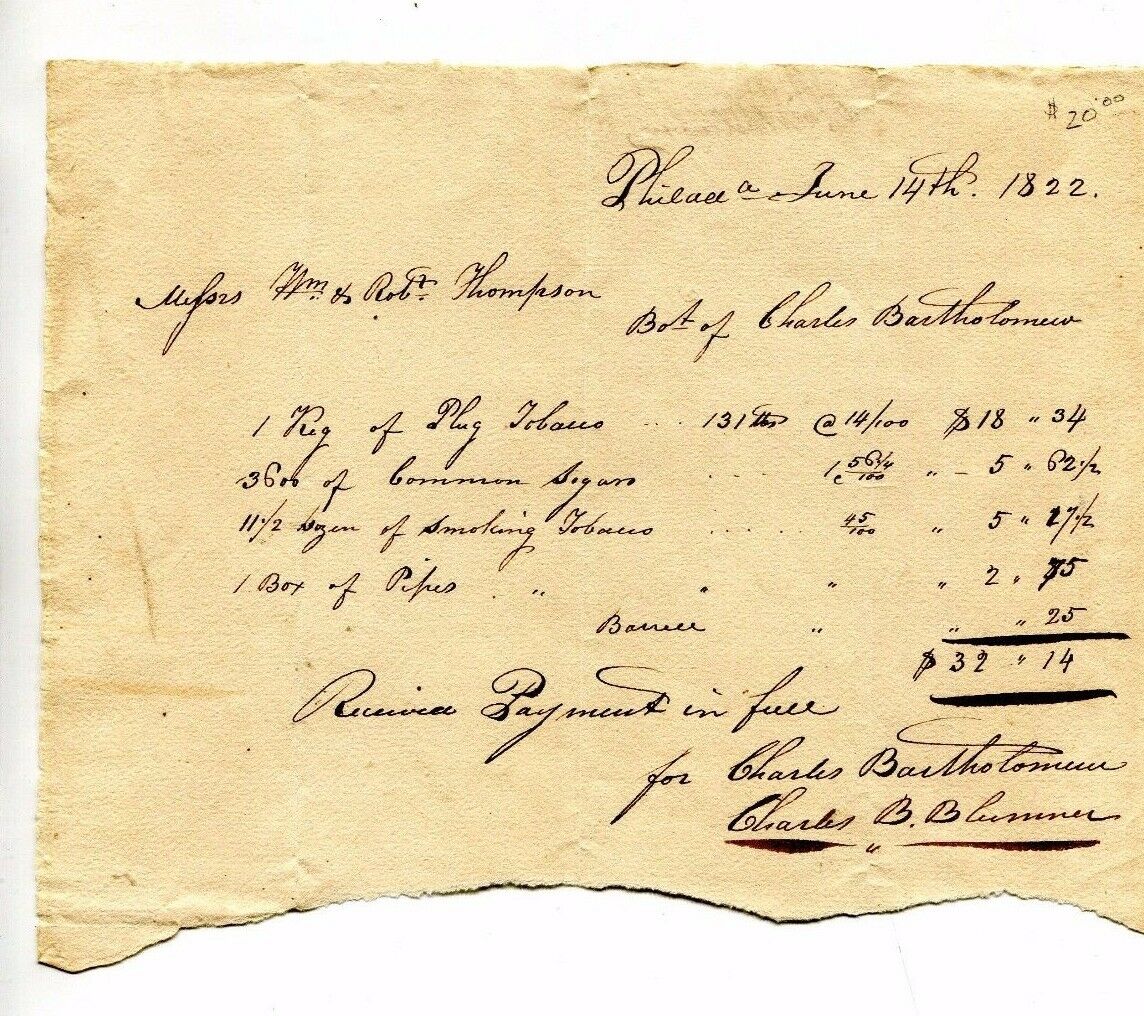 $ 20.00
Philad a June 14th. 1822.
Messrs Wm. & Robt. Thompson
Bot of Charles Bartholomew
1 Keg of Plug Tobacco .... 131 lbs @ 14/100 $18 " 34
3600 of Common Segars . . 1 56 1/4/100 " - 5 " 62 1/2
11 1/2 Dozen of Smoking Tobacco . . . . 45/100 " 5 " 17 1/2
1 Box of Pipes . " " " " 2 " 75
Barrell " " " 25
$ 32 " 14
Received Payment in full
for Charles Bartholomew
Charles B. Blumner
"